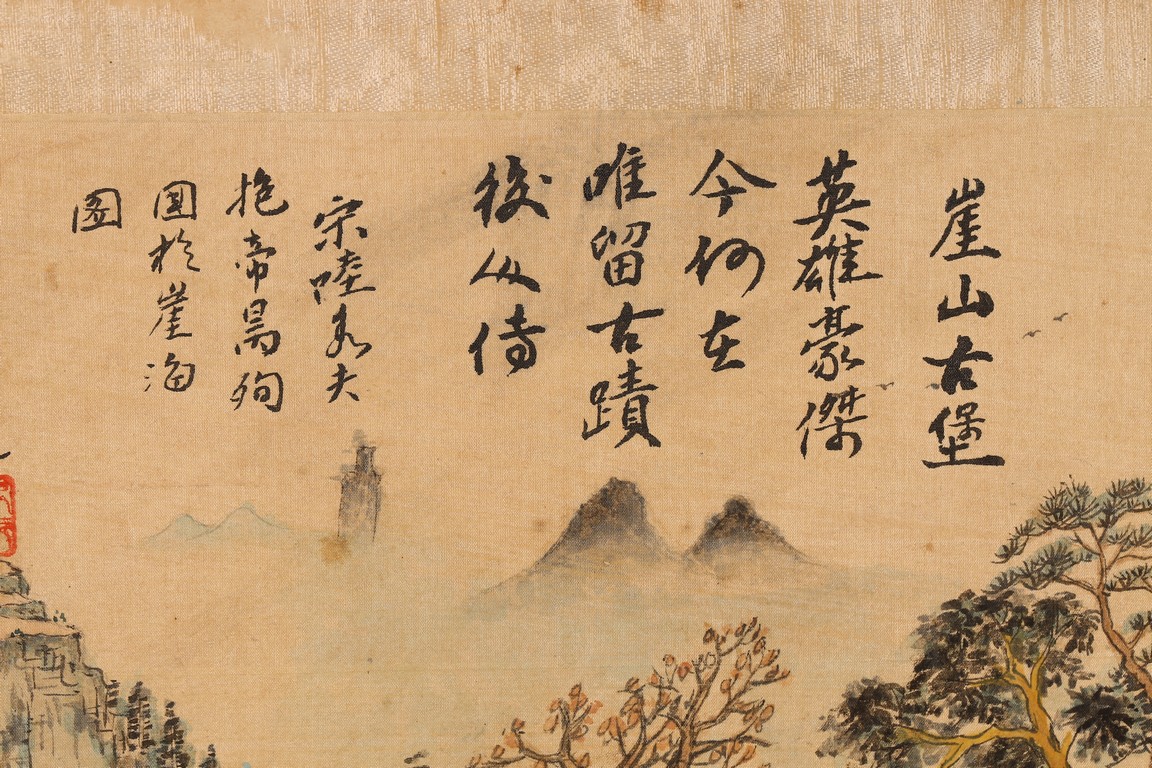 崖山古堡
英雄豪傑
今何在
唯留古蹟
後从侍
宋陸秀夫
抱帝昺殉
國於崖海
图